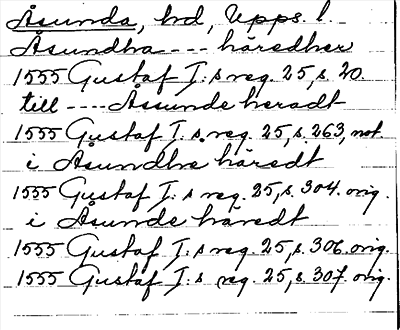 Åsunda, hd, Upps. l.
Åsundha --- häredher
1555 Gustaf I:s reg. 25, s. 20.
till ---- Åssunde heradt
1555 Gustaf I:s reg. 25, s. 263, not.
i Åsundhe häredt
1555 Gustaf I:s reg. 25, s. 304. orig.
i Åsunde häredt
1555 Gustaf I:s reg. 25, s. 306. orig.
1555 Gustaf I:s reg. 25, s. 307. orig.